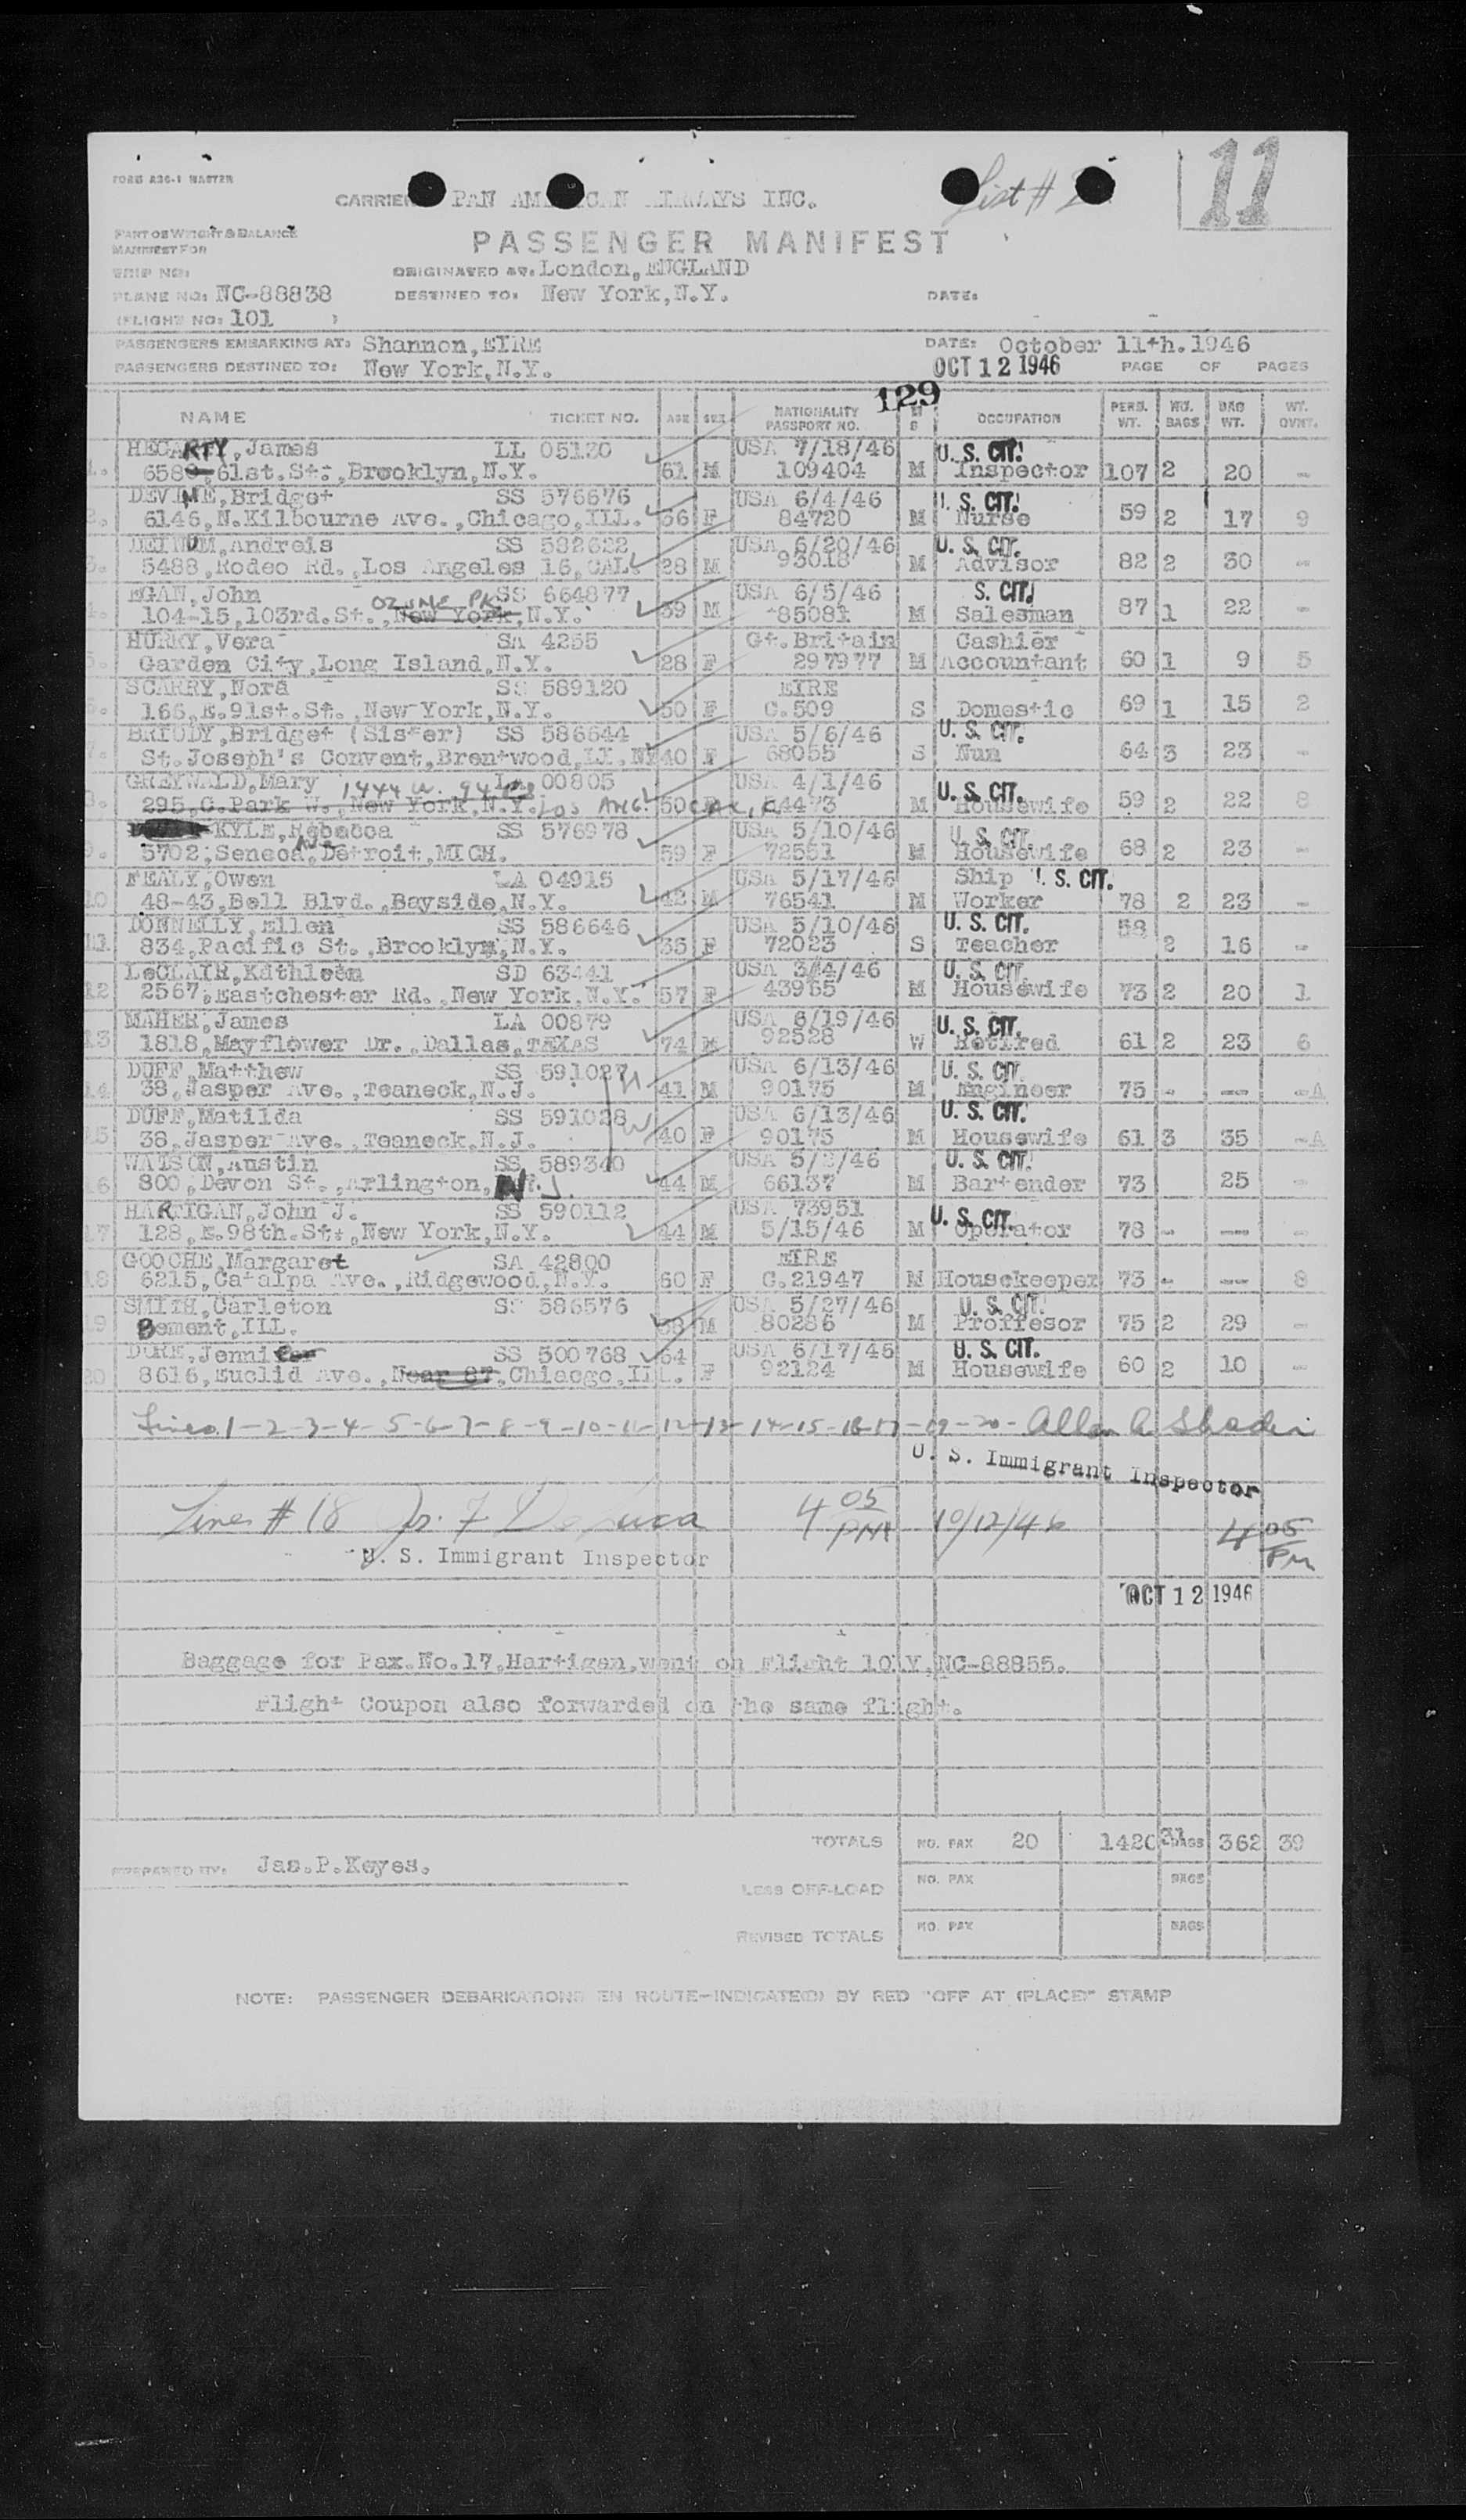 FORM A30-1 MASTER
CARRIER PAN AMERICAN AIRWAYS INC.
List #
11
PART OF WEIGHT & BALANCE
MANIFEST FOR
PASSENGER MANIFEST
SHIP NO:
ORIGINATED AT: London, ENGLAND
PLANE NO: NC-88838
DESTINED TO: New York, N.Y.
DATE:
(FLIGHT NO: 101 )
PASSENGERS EMBARKING AT: Shannon, EIRE
DATE: October 11th. 1946
PASSENGERS DESTINED TO: New York, N.Y.
OCT 12 1946
PAGE OF PAGES
129
NAME TICKET NO. AGE SEX NATIONALITY PASSPORT NO. M S OCCUPATION PERS. WT. NO. BAGS BAG WT. WT. OVWT.
HEGARTY, James LL 05130 USA 7/18/46 U. S. CIT.
1. 61st. St., Brooklyn, N.Y. 61 M 109404 M Inspector 107 2 20 -
DEVINE, Bridget SS 576676 USA 6/4/46 U. S. CIT.
2. 6146, N. Kilbourne Ave., Chicago, ILL. 36 F 84720 M Nurse 59 2 17 9
DEINUM, Andreis SS 582622 USA 6/20/46 U. S. CIT.
3. 5488, Rodeo Rd., Los Angeles 16, CAL. 28 M 93018 M Advisor 82 2 30 -
EGAN, John SS 664877 USA 6/5/46 S. CIT.
OZONE PK
4. 104-15, 103rd. St., New York, N.Y. 39 M 85081 M Salesman 87 1 22 -
HURRY, Vera SA 4255 Gt. Britain Cashier
5. Garden City, Long Island, N.Y. 28 F 297977 M Accountant 60 1 9 5
SCARRY, Nora SS 589120 EIRE
6. 166, E. 91st. St., New York, N.Y. 50 F C.509 S Domestic 69 1 15 2
BRIODY, Bridget (Sister) SS 586644 USA 5/6/46 U. S. CIT.
7. St. Joseph's Convent, Brentwood, LI. NY 40 F 68055 S Nun 64 3 23 -
GREYWALD, Mary LA 00805 USA 4/1/46 U. S. CIT.
1444 W.
8. 295, C. Park W., New York, N.Y. Los Ang. 50 F M Housewife 59 2 22 8
KYLE, Rebecca SS 576978 USA 5/10/46 U. S. CIT.
9. 5702, Seneca, Ave Detroit, MICH. 59 F 72551 M Housewife 68 2 23 -
FEALY, Owen LA 04915 USA 5/17/46 Ship U. S. CIT.
10 48-43, Bell Blvd., Bayside, N.Y. 42 M 76541 M Worker 78 2 23 -
DONNELLY, Ellen SS 586646 USA 5/10/46 U. S. CIT.
11 834, Pacific St., Brooklyn, N.Y. 35 F 72023 S Teacher 58 2 16 -
LeCLAIR, Kathleen SD 63441 USA 3/4/46 U. S. CIT.
12 2567, Eastchester Rd., New York, N.Y. 57 F 43965 M Housewife 73 2 20 1
MAHER, James LA 00879 USA 6/19/46 U. S. CIT.
13 1818, Mayflower Dr., Dallas, TEXAS 74 M 92528 W Retired 61 2 23 6
DUFF, Matthew SS 591027 H USA 6/13/46 U. S. CIT.
14 38, Jasper Ave., Teaneck, N.J. 41 M 90175 M Engineer 75 - -- -A
DUFF, Matilda SS 591028 W USA 6/13/46 U. S. CIT.
15 38, Jasper Ave., Teaneck, N.J. 40 F 90175 M Housewife 61 3 35 -A
WATSON, Austin SS 589340 USA 5/2/46 U. S. CIT.
16 800, Devon St., Arlington, N.J. 44 M 66137 M Bartender 73 25 -
HARTIGAN, John J. SS 590112 USA 73951 U. S. CIT.
17 128, E. 98th. St., New York, N.Y. 44 M 5/15/46 M Operator 78 - -- -
GOOCHE, Margaret SA 42800 EIRE
18 6215, Catalpa Ave., Ridgewood, N.Y. 60 F C.21947 M Housekeeper 73 - -- 8
SMITH, Carleton SS 586576 USA 5/27/46 U. S. CIT.
19 Bement, ILL. M 80286 M Proffesor 75 2 29 -
DURE, Jennie SS 500768 64 USA 6/17/46 U. S. CIT.
20 8616, Euclid Ave., Near 87, Chiacgo, ILL. F 92124 M Housewife 60 2 10 -
Lines 1-2-3-4-5-6-7-8-9-10-11-12-13-14-15-16-17-19-20-
U. S. Immigrant Inspector
Line #18 4 05 PM 10/12/46 4 05 PM
U. S. Immigrant Inspector
OCT 12 1946
Baggage for Pax. No. 17, Hartigan, went on Flight 101Y, NC-88855.
Flight Coupon also forwarded on the same flight.
TOTALS NO. PAX 20 1420 31 BAGS 362 39
PREPARED BY: Jas. P. Keyes.
LESS OFF-LOAD NO. PAX BAGS
REVISED TOTALS NO. PAX BAGS
NOTE: PASSENGER DEBARKATIONS EN ROUTE-INDICATE(D) BY RED "OFF AT (PLACE)" STAMP